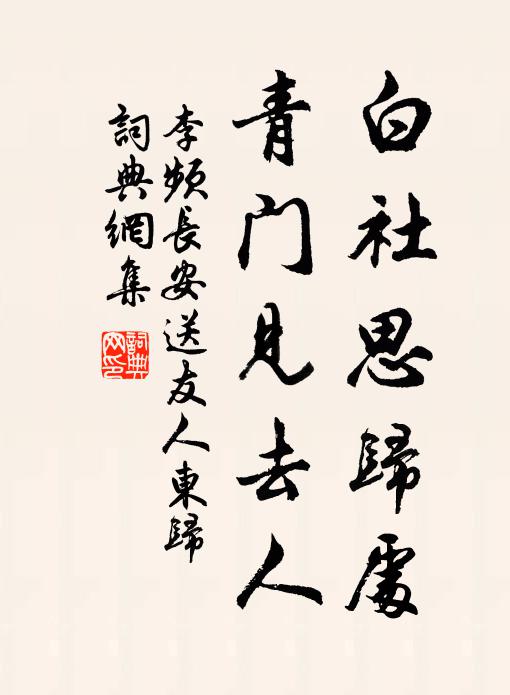 白社思歸處
青門見去人
李頻長安送友人東歸
詞典網集
詞典
网印